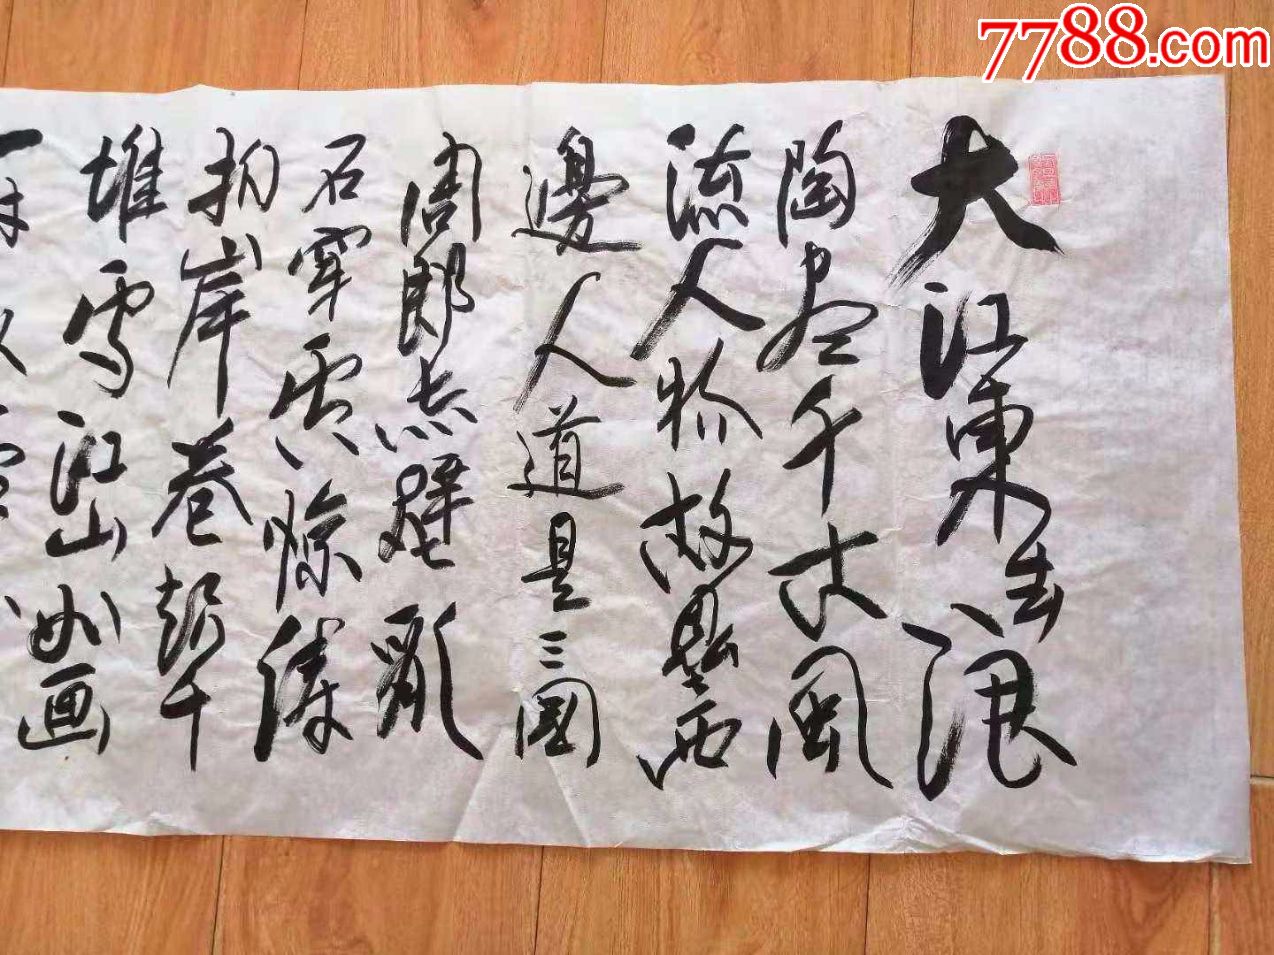 7788.com
大江東去浪
陶盡千古風
流人物故壘西
邊人道是三國
周郎赤壁亂
石穿空驚濤
拍岸卷起千
堆雪江山如画
一